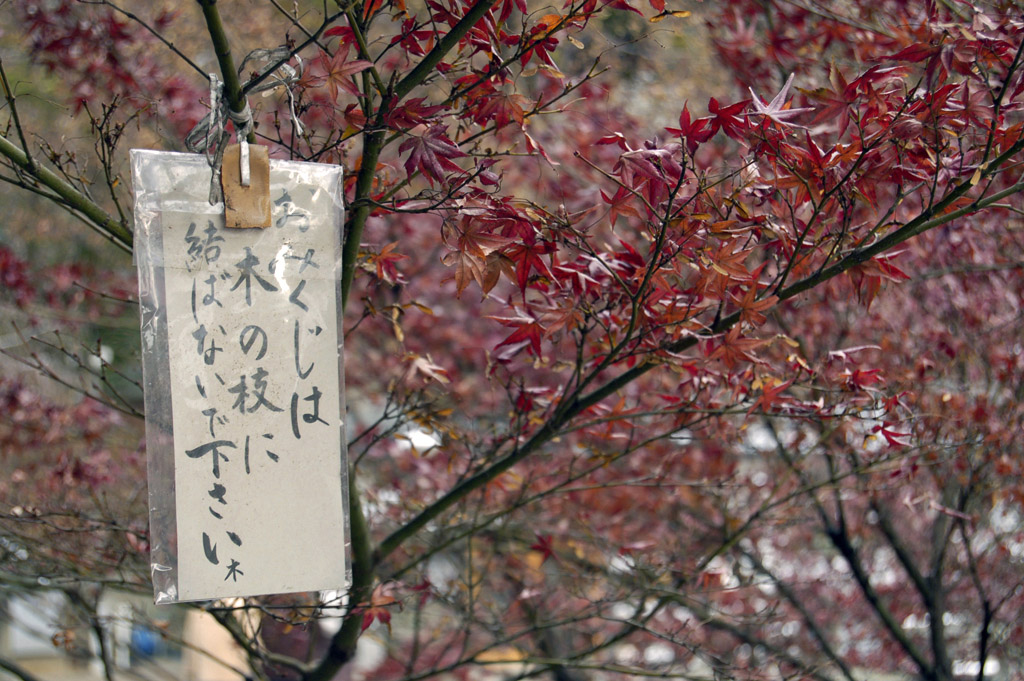 おみくじは
木の枝に
結ばないで下さい。
木